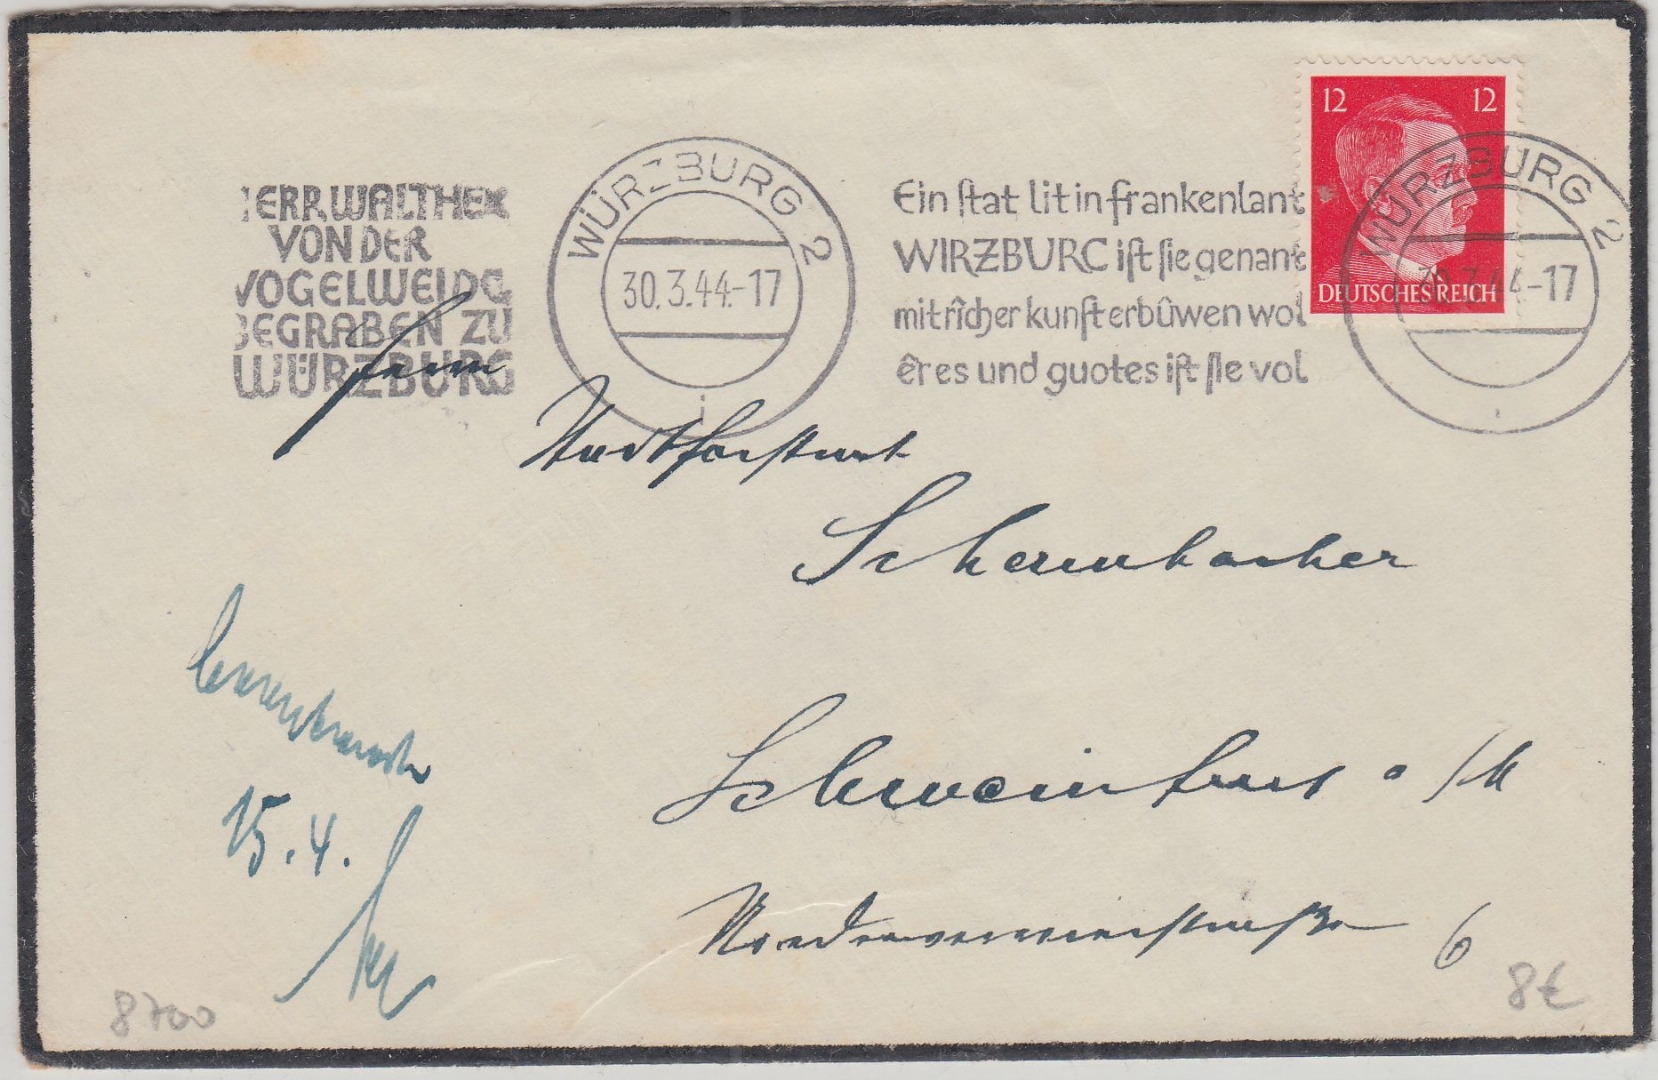 HERR WALTHER
VON DER
VOGELWEIDE
BEGRABEN ZU
WÜRZBURG
WÜRZBURG 2
30.3.44.-17
i
Ein stat lit in frankenlant
WIRZBURC ist sie genant
mit rîcher kunst erbûwen wol
êres und guotes ist sie vol
12 12
DEUTSCHES REICH
WÜRZBURG 2
30.3.44-17
Herrn
Schermbacher
Schweinfurt a/M
6
15.4.
8700
8€